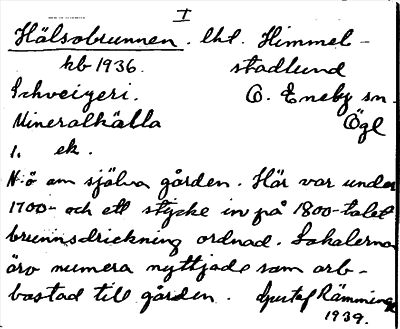 I
Hälsobrunnen. lht. Himmel-
kb 1936. stadlund
Schveizeri. Ö. Eneby sn.
Mineralkälla Ögl
1. ek.
N.ö om själva gården. Här var under
1700- och ett stycke in på 1800-talet
brunnsdrickning ordnad. Lokalerna
äro numera nyttjade som arb-
bostad till gården. Gustaf Rämminge
1939.